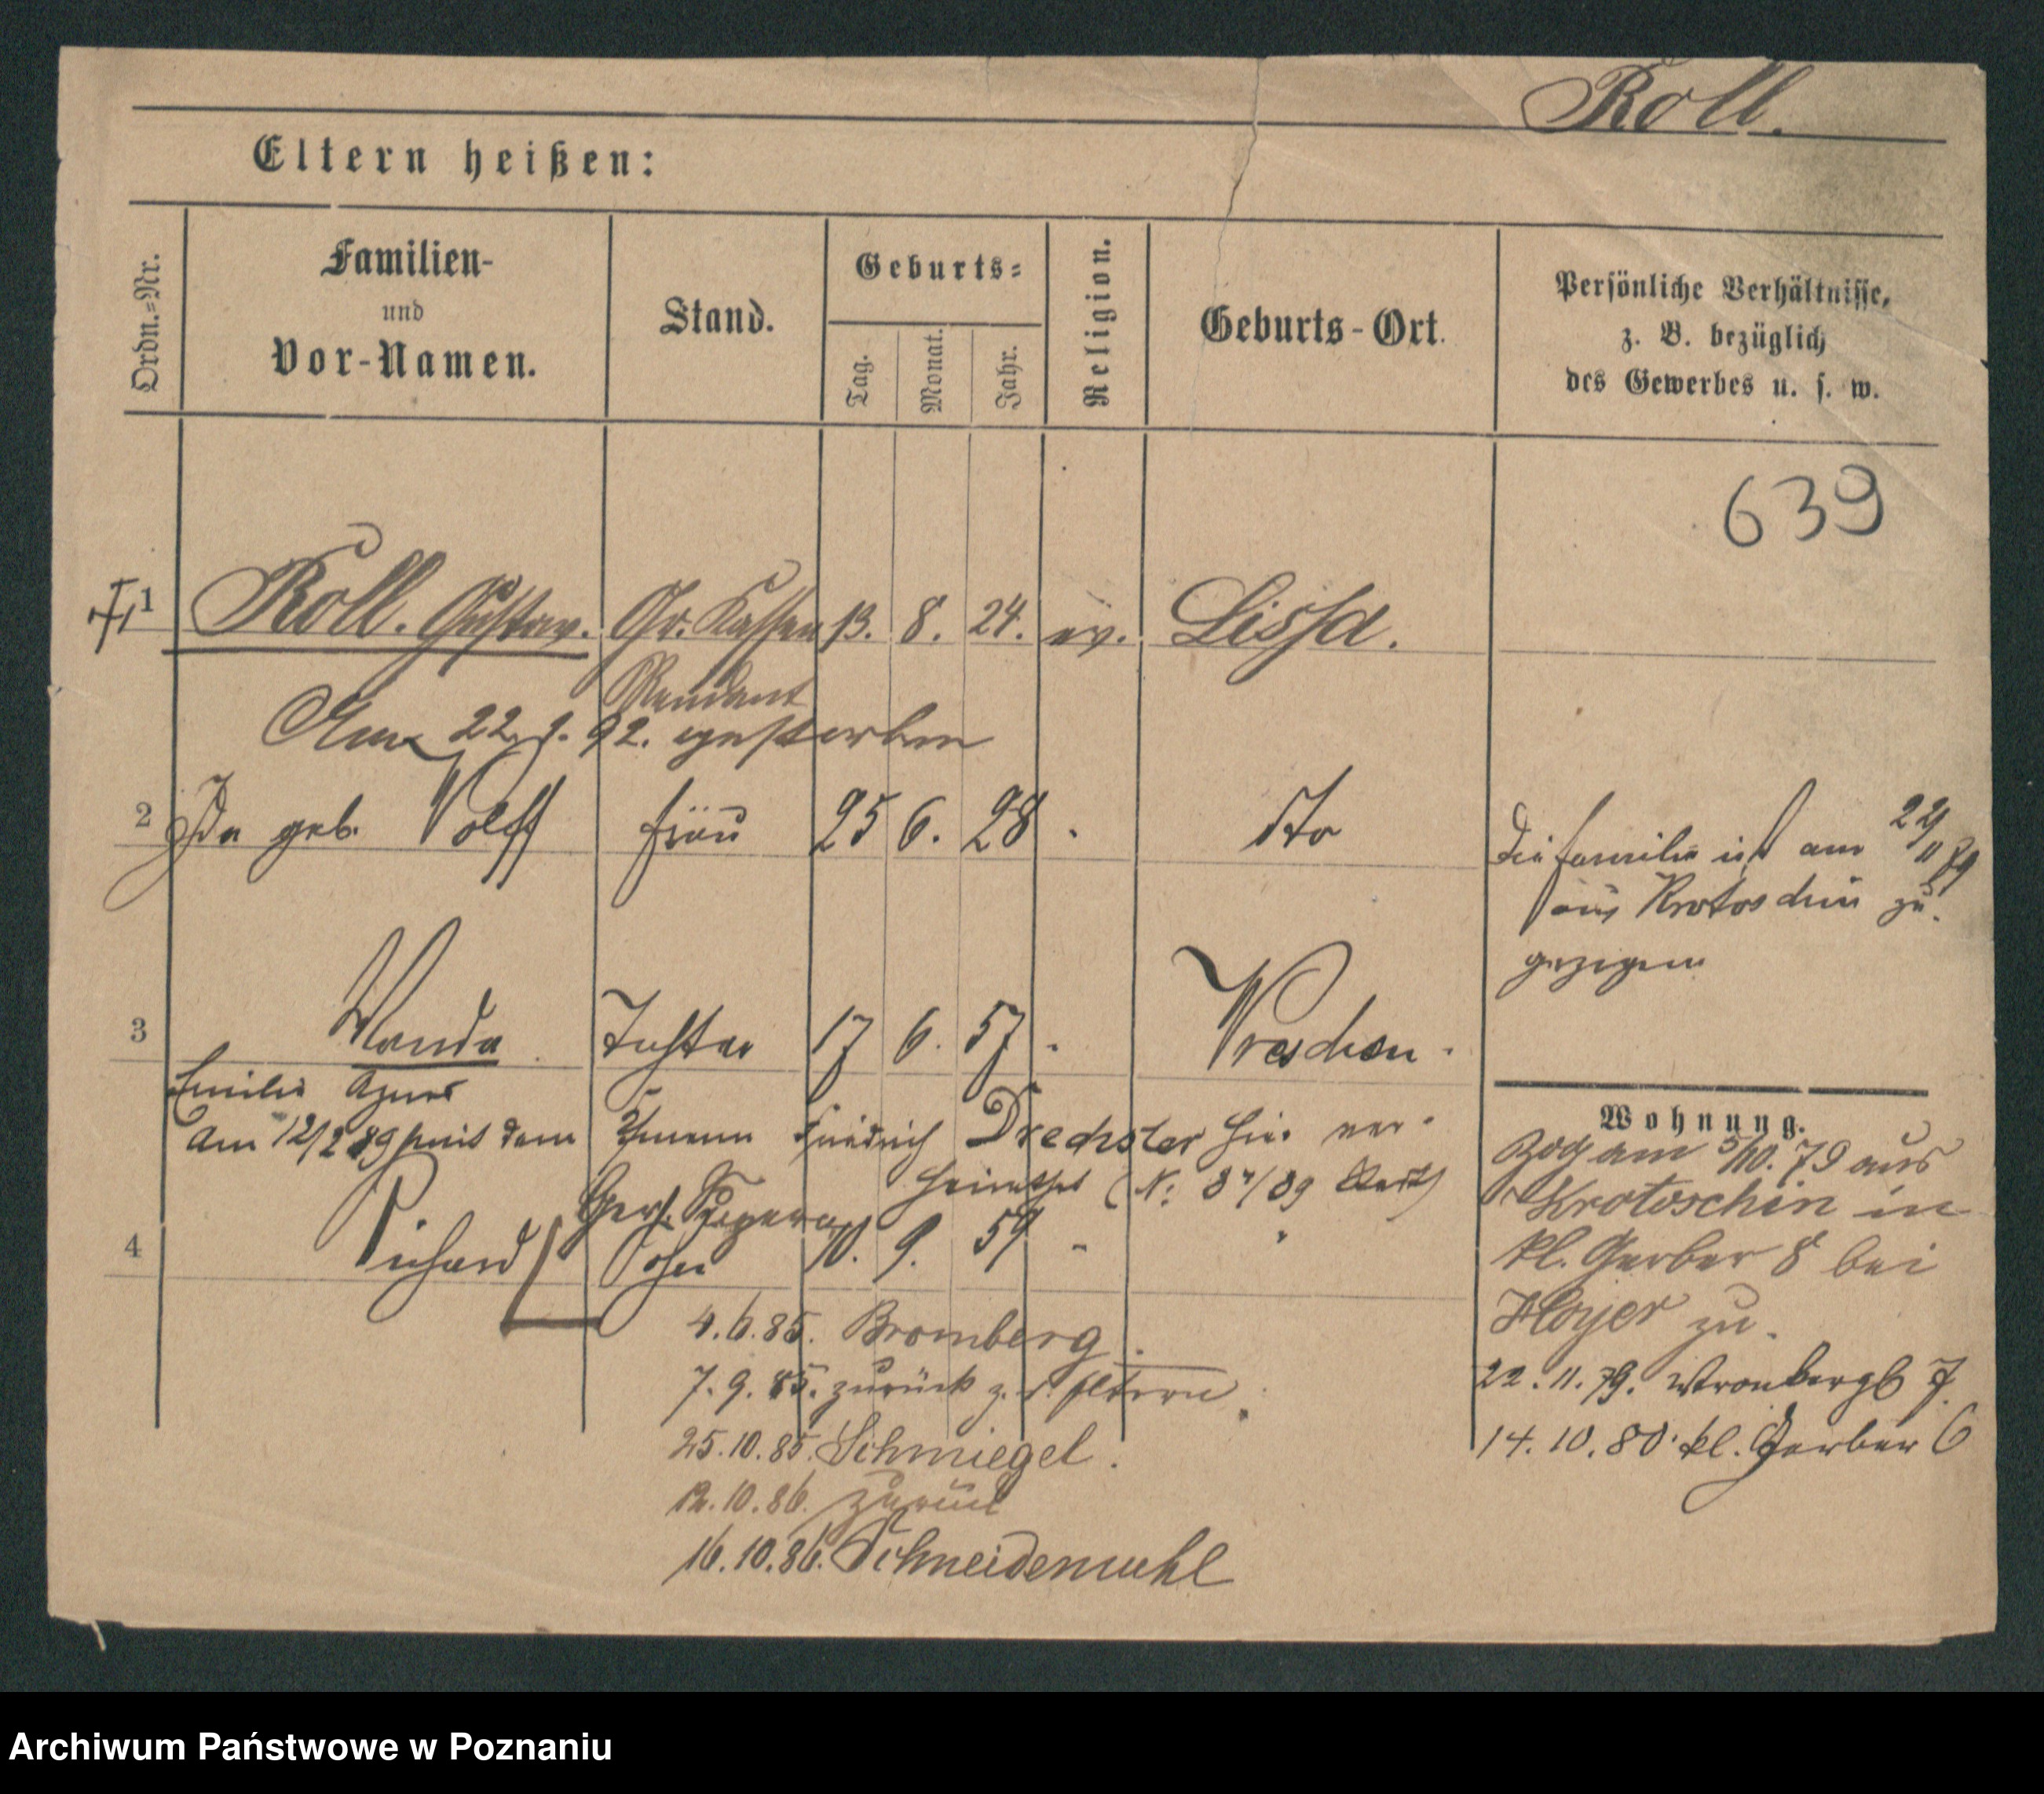 Roll.
Eltern heißen:
Ordn.-Nr.
Familien-
und
Vor-Namen.
Stand.
Geburts-
Tag.
Monat.
Jahr.
Religion.
Geburts-Ort.
Persönliche Verhältnisse,
z. B. bezüglich
des Gewerbes u. s. w.
639
1 Roll. Gustav. Gr. Kassen 13. 8. 24. ev. Lissa.
Rendant
Am 22. 9. 92. gestorben
2 Ida geb. Wolff Frau 25 6. 28 " dto
Die Familie ist am 22/11 79
aus Krotoschin zu-
gezogen
3 Wanda Tochter 17 6. 57 " Wreschen.
Emilie Agnes
Am 12/2 89 mit dem Friedrich Drechsler hier ver-
heirathet (N: 87/89 
4 Richard Sohn 10. 9. 59 " "
4.6.85. Bromberg.
7.9.85. zurück z. d. Eltern.
25.10.85. Schmiegel.
12.10.86. zurück
16.10.86. Schneidemuhl
Wohnung.
Zog am 5/10. 79 aus
Krotoschin in
kl. Gerber 8 bei
Hoyer zu.
22.11.79. Wronkerpl 7.
14.10.80. kl. Gerber 6
Archiwum Państwowe w Poznaniu